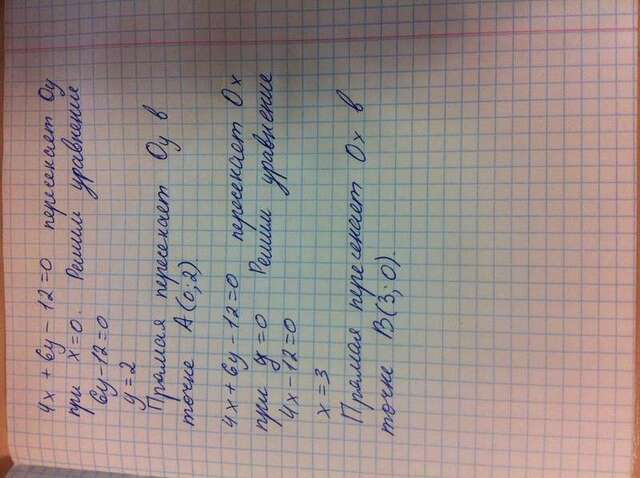 4x + 6y - 12 = 0 пересекает Oy
при x = 0. Решим уравнение
6y - 12 = 0
y = 2
Прямая пересекает Oy в
точке A (0; 2).
4x + 6y - 12 = 0 пересекает Ox
при y = 0 Решим уравнение
4x - 12 = 0
x = 3
Прямая пересекает Ox в
точке B (3; 0).